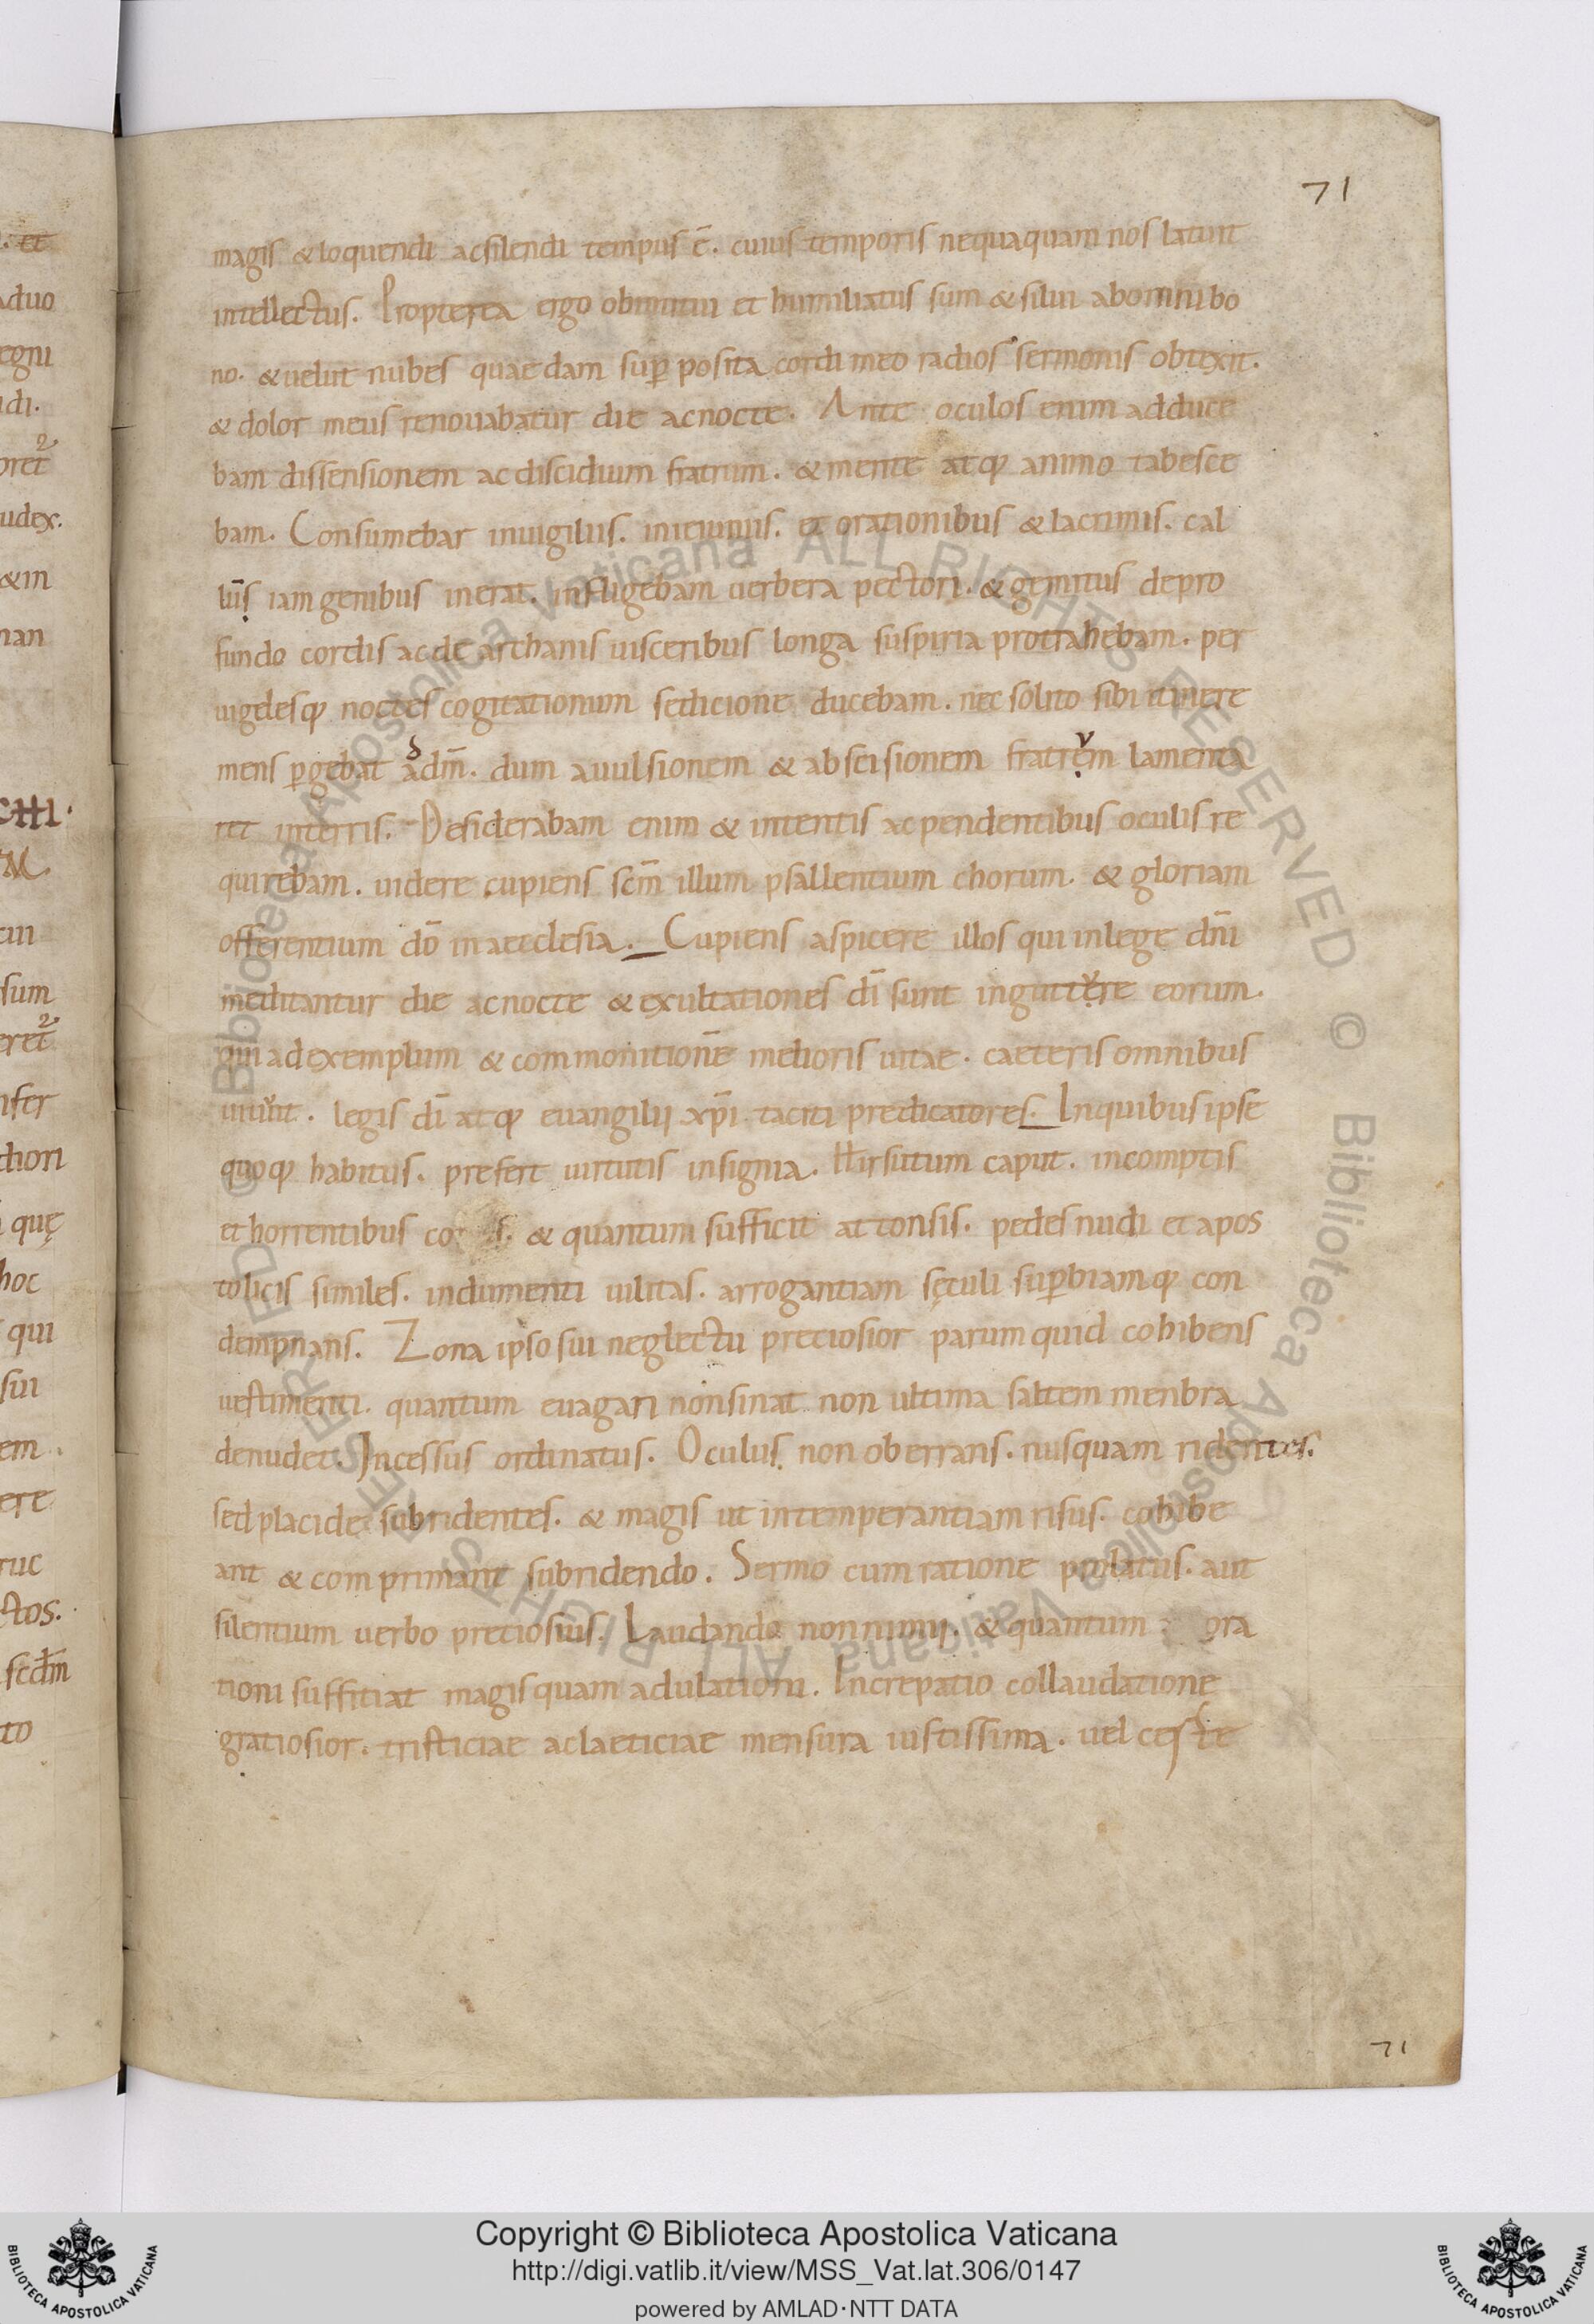 71
magis & loquendi ac silendi tempus ē. cuius temporis nequaquam nos latuit
intellectus. Propterea ergo obmutui et humiliatus sum & silui ab omni bo
no. & uelut nubes quaedam sup posita cordi meo radios sermonis obtexit.
& dolor meus renouabatur die ac nocte. Ante oculos enim adduce
bam dissensionem ac discidium fratrum. & mente atq; animo tabesce
bam. Consumebar in uigiliis. in ieiuniis. et orationibus & lacrimis. cal
lus iam genibus inerat. infligebam uerbera pectori. & gemitus de pro
fundo cordis ac de archanis uisceribus longa suspiria protrahebam. per
uigilesq; noctes cogitationum sedicione ducebam. nec solito sibi itinere
mens pgebat ad dm̄. dum auulsionem & abscisionem fratrum lamenta
ret in terris. Desiderabam enim & intentis ac pendentibus oculis re
quirebam. uidere cupiens scm̄ illum psallentium chorum. & gloriam
offerentium dō in aecclesia. Cupiens aspicere illos qui in lege dn̄i
meditantur die ac nocte & exultationes dī sunt in gutture eorum.
qui ad exemplum & commonitionē melioris uitae. caeteris omnibus
uiuunt. legis dī atq; euangilii xp̄i taciti predicatores. In quibus ipse
quoq; habitus. prefert uirtutis insignia. Hirsutum caput. incomptis
et horrentibus & quantum sufficit attonsis. pedes nudi et apos
tolicis similes. indumenti uilitas. arrogantiam sęculi supbiamq; con
dempnans. Zona ipso sui neglectu preciosior parum quid cohibens
uestimenti. quantum euagari non sinat non ultima saltem menbra
denudet. Incessus ordinatus. Oculus non oberrans. nusquam ridentes.
sed placide subridentes. & magis ut intemperantiam risus. cohibe
ant & comprimant subridendo. Sermo cum ratione prolatus. aut
silentium uerbo preciosius. Laudando non nimii. & quantum ora
tioni suffitiat magis quam adulationi. Increpatio collaudatione
gratiosior. tristiciae ac laeticiae mensura iustissima. uel
71
Copyright © Biblioteca Apostolica Vaticana
http://digi.vatlib.it/view/MSS_Vat.lat.306/0147
powered by AMLAD·NTT DATA